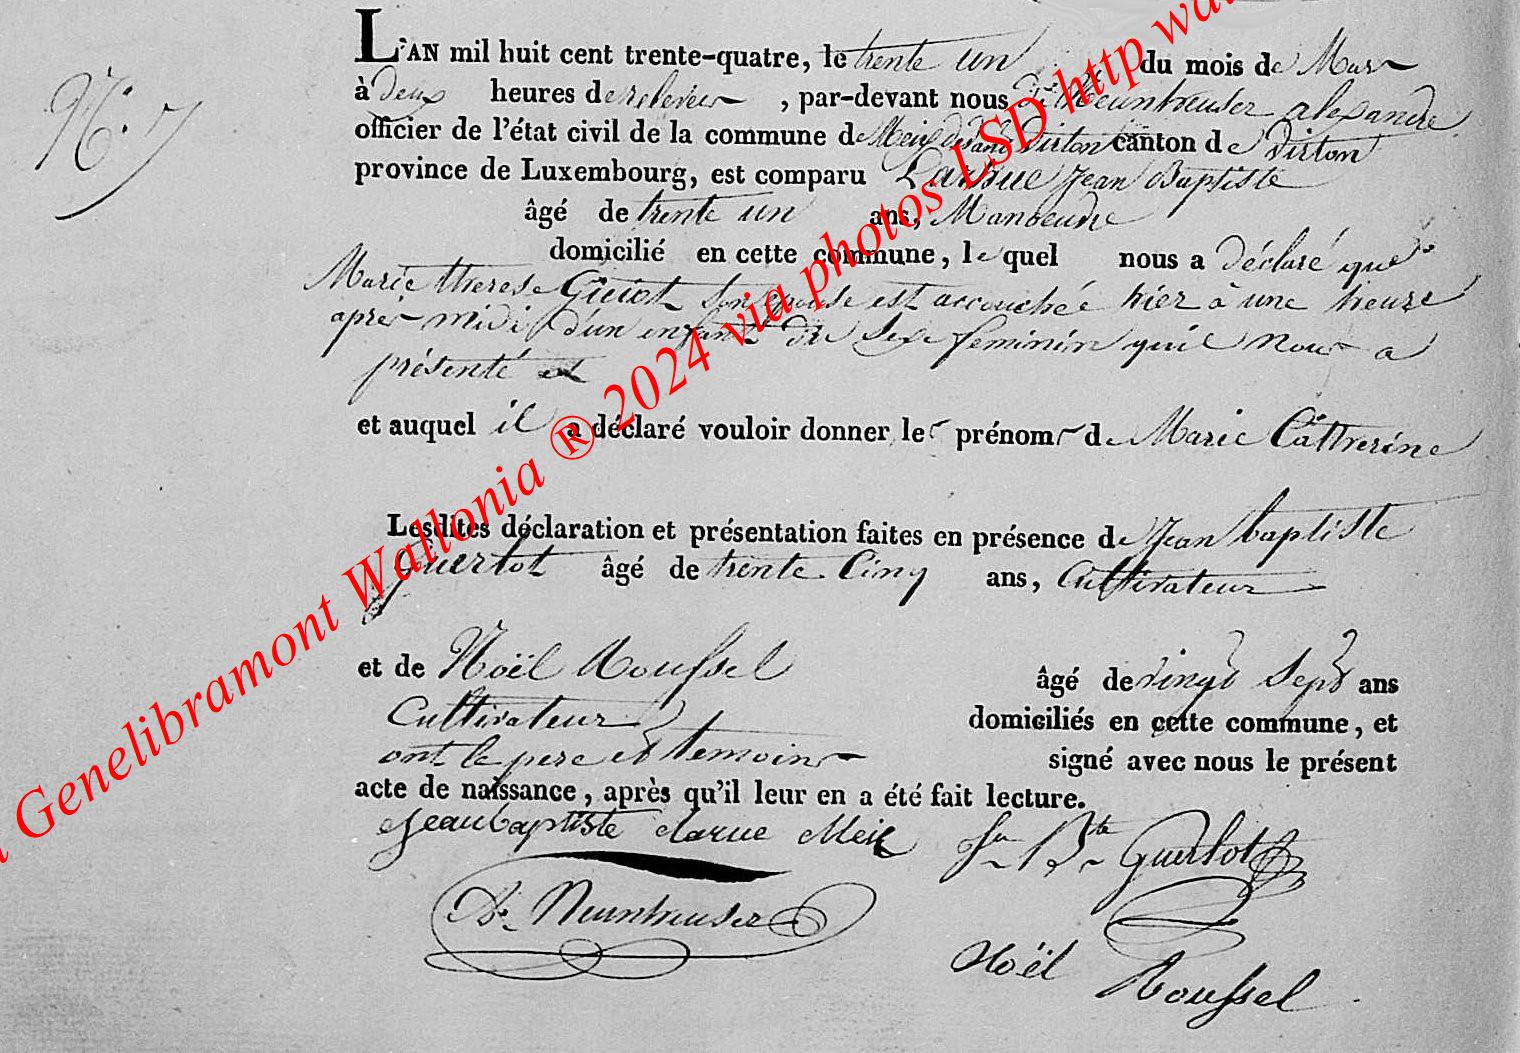 N.° 7
L'AN mil huit cent trente-quatre, le trente un du mois de Mars
à deux heures de relevée, par-devant nous Neunheuser alexandre
officier de l'état civil de la commune de Meix devant Virton canton de Virton
province de Luxembourg, est comparu Larue Jean Baptiste
âgé de trente un ans, Manoeuvre
domicilié en cette commune, le quel nous a déclaré que
Marie therese son épouse est accouchée hier à une heure
après midi d'un enfant du sexe feminin qu'il nous a
présenté et
et auquel il a déclaré vouloir donner les prénoms de Marie Cathrerine
Lesdites déclaration et présentation faites en présence de Jean baptiste
Guerlot âgé de trente Cinq ans, Cultivateur
et de Noël Roussel âgé de vingt Sept ans
Cultivateur domiciliés en cette commune, et
ont le pere et temoins signé avec nous le présent
acte de naissance, après qu'il leur en a été fait lecture.
Jeanbaptiste Larue Meix Jn Bte Guerlot
A. Neunheuser
Noël Roussel
Genelibramont Wallonia ® 2024 via photos LSD http wa